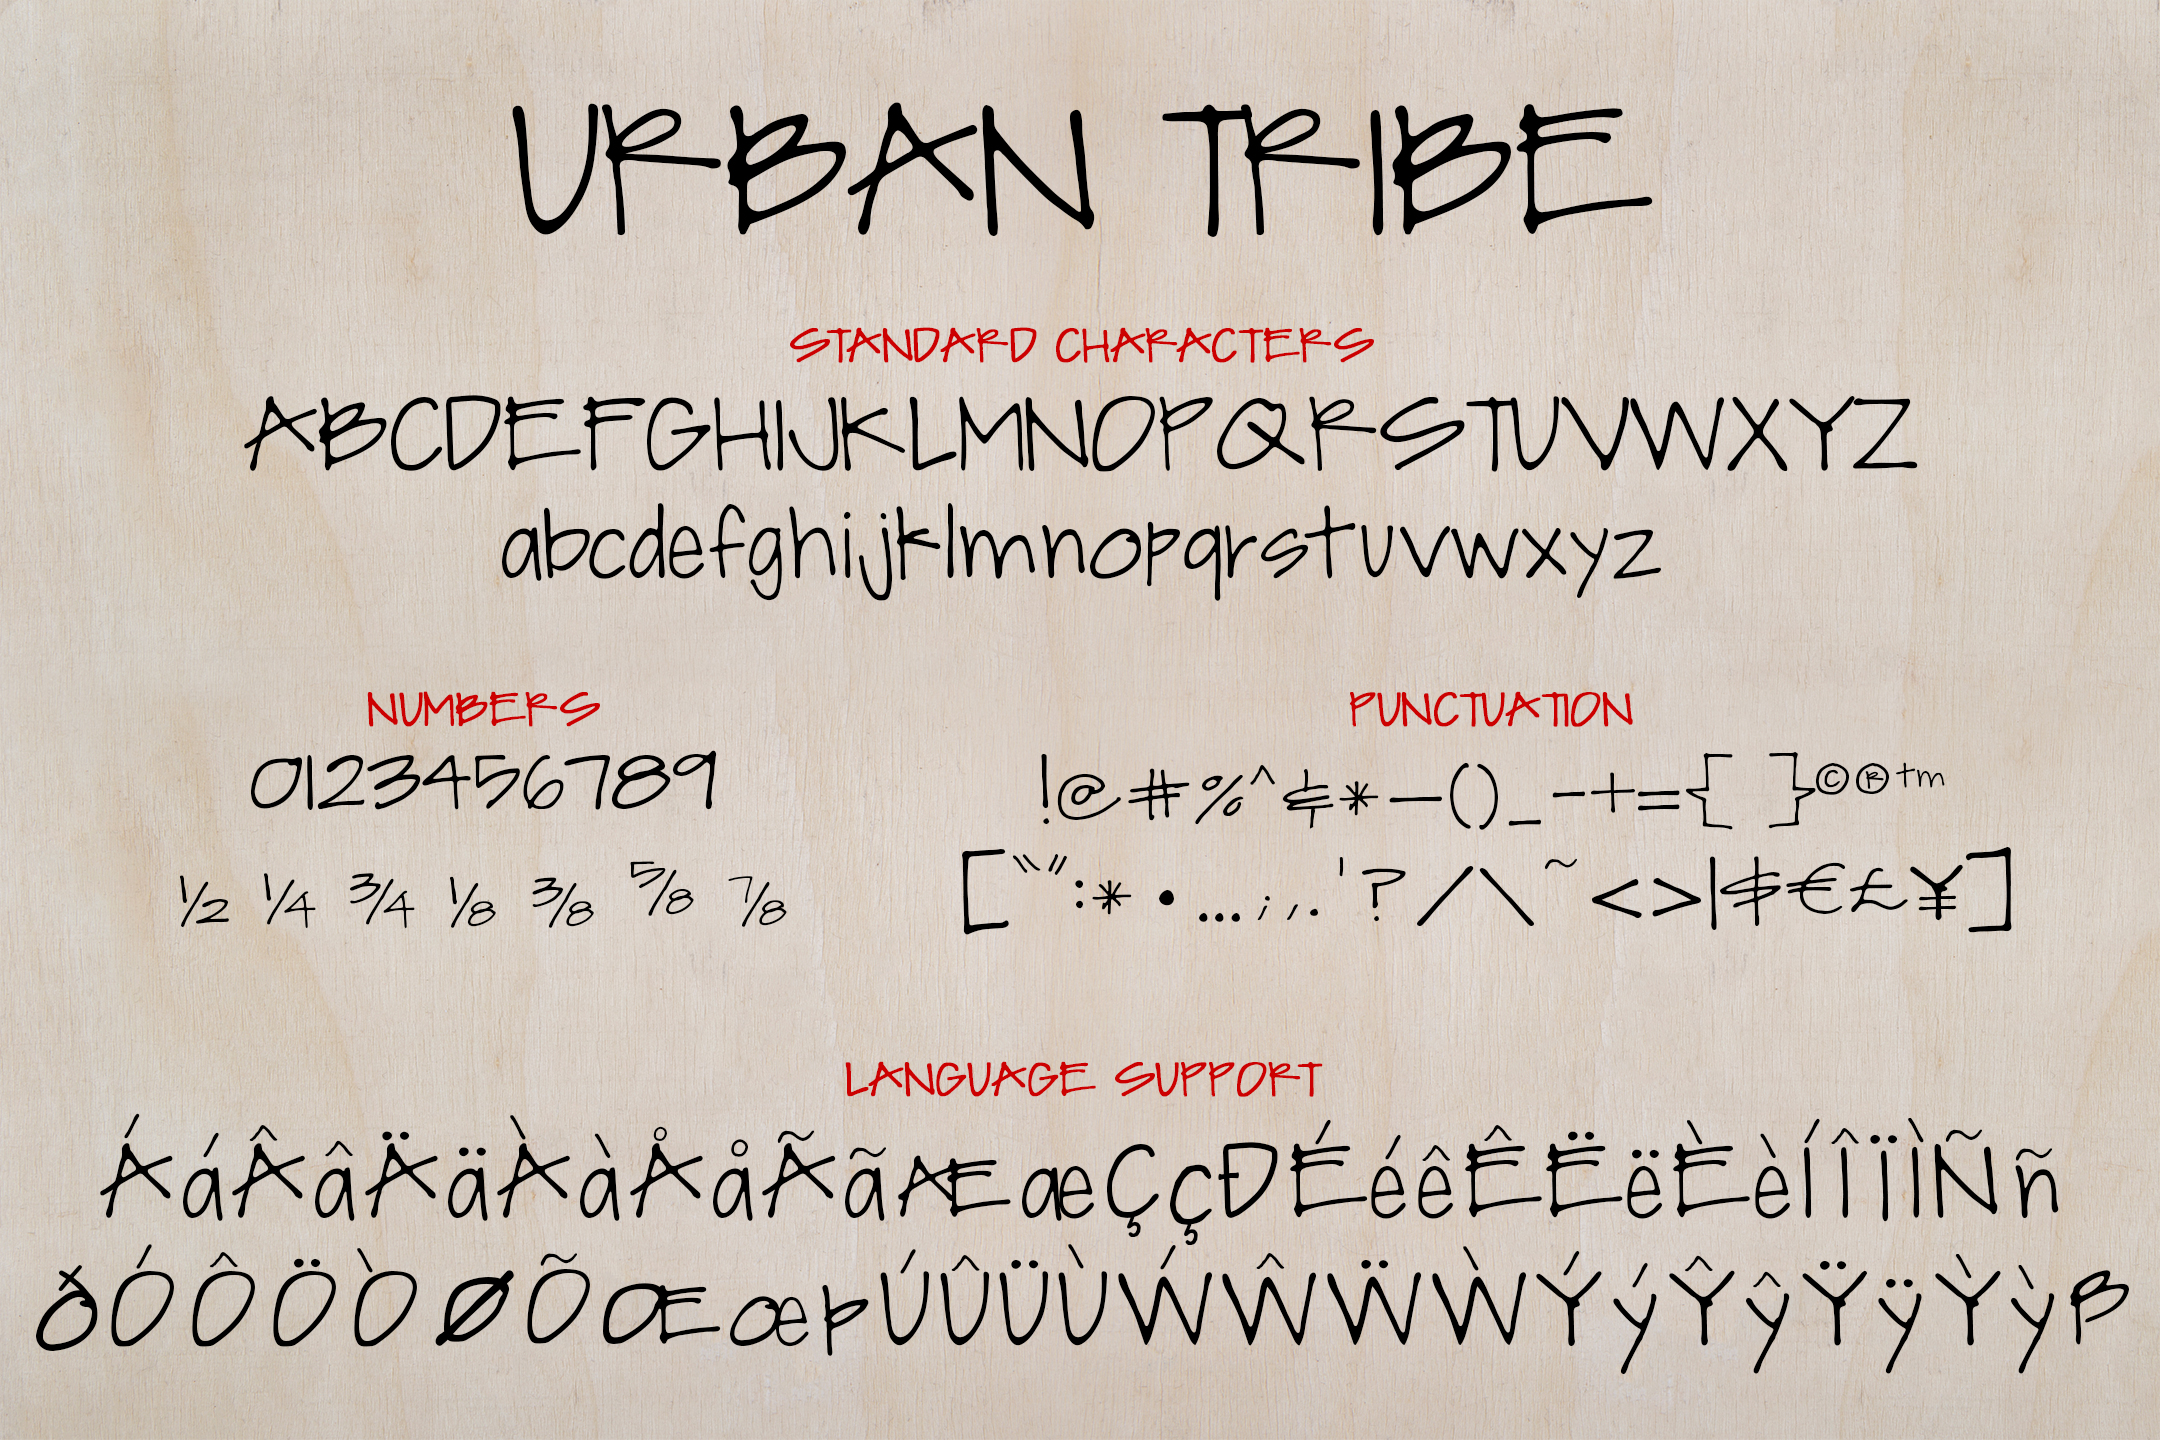 URBAN TRIBE
STANDARD CHARACTERS
ABCDEFGHIJKLMNOPQRSTUVWXYZ
abcdefghijklmnopqrstuvwxyz
NUMBERS
0123456789
½ ¼ ¾ ⅛ ⅜ ⅝ ⅞
PUNCTUATION
!@#%^&*—()_-+={ }©®™
[“”:* • …;,.'?/\~<>|$€£¥]
LANGUAGE SUPPORT
ÁáÂâÄäÀàÅåÃãÆæÇçÐÉéêÊËëÈèÍÎÏÌÑñ
ðÓÔÖÒØÕŒœþÚÛÜÙẂŴẄẀÝýŶŷŸÿỲỳß